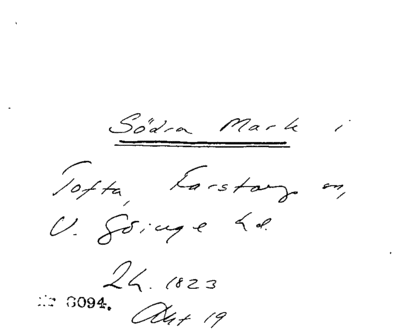 Södra Mark i
Tofta, Farstorps sn,
V. Göinge hd.
2h. 1823
Nr 8094.
Akt 19